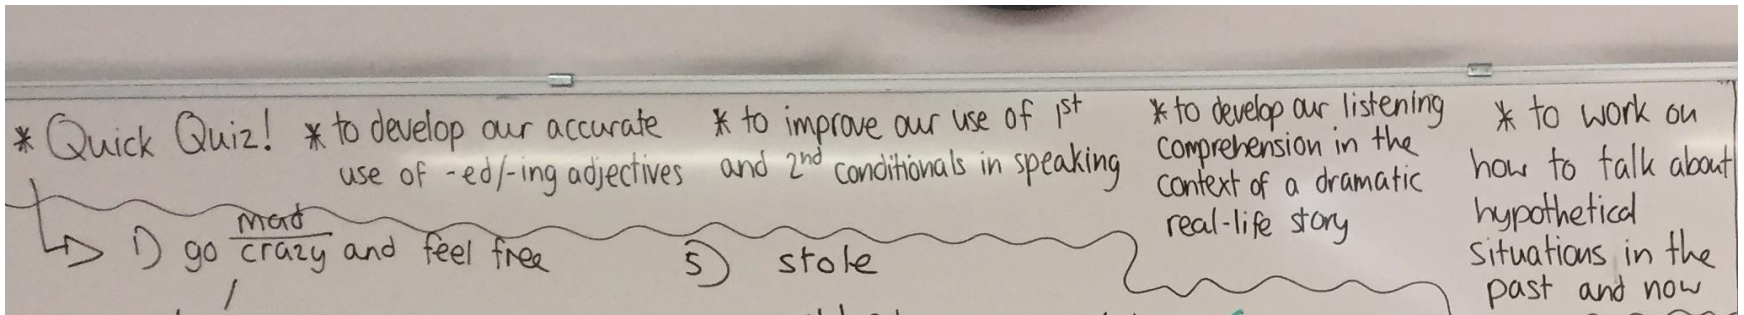 * Quick Quiz!
* to develop our accurate
use of -ed/-ing adjectives
* to improve our use of 1st
and 2nd conditionals in speaking
* to develop our listening
comprehension in the
context of a dramatic
real-life story
* to work on
how to talk about
hypothetical
situations in the
past and now
mad
1) go crazy and feel free
5) stole